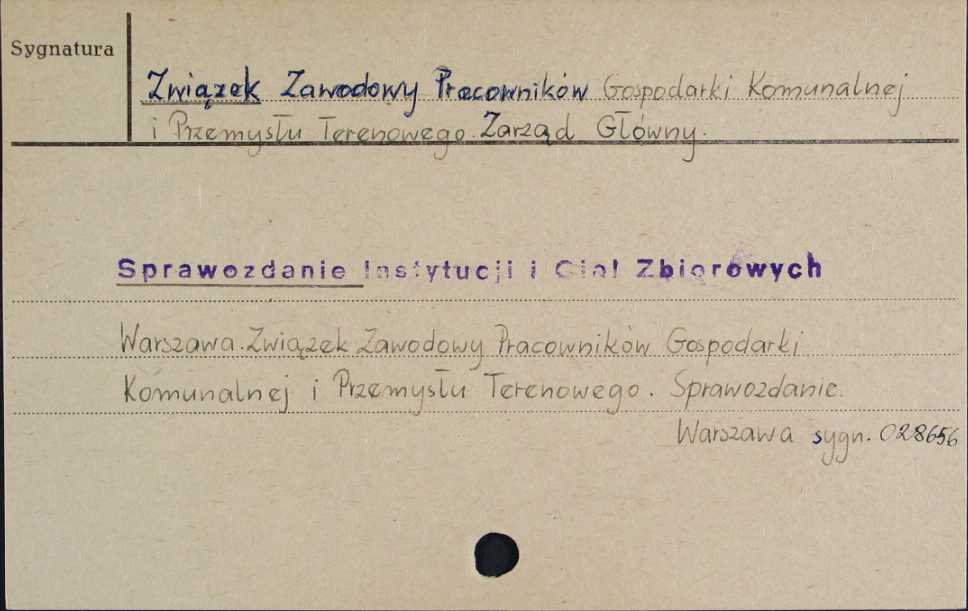 Sygnatura
Związek Zawodowy Pracowników Gospodarki Komunalnej
i Przemysłu Terenowego. Zarząd Główny.
Sprawozdanie Instytucji i Ciał Zbiorowych
Warszawa. Związek Zawodowy Pracowników Gospodarki
Komunalnej i Przemysłu Terenowego. Sprawozdanie.
Warszawa sygn. 028656